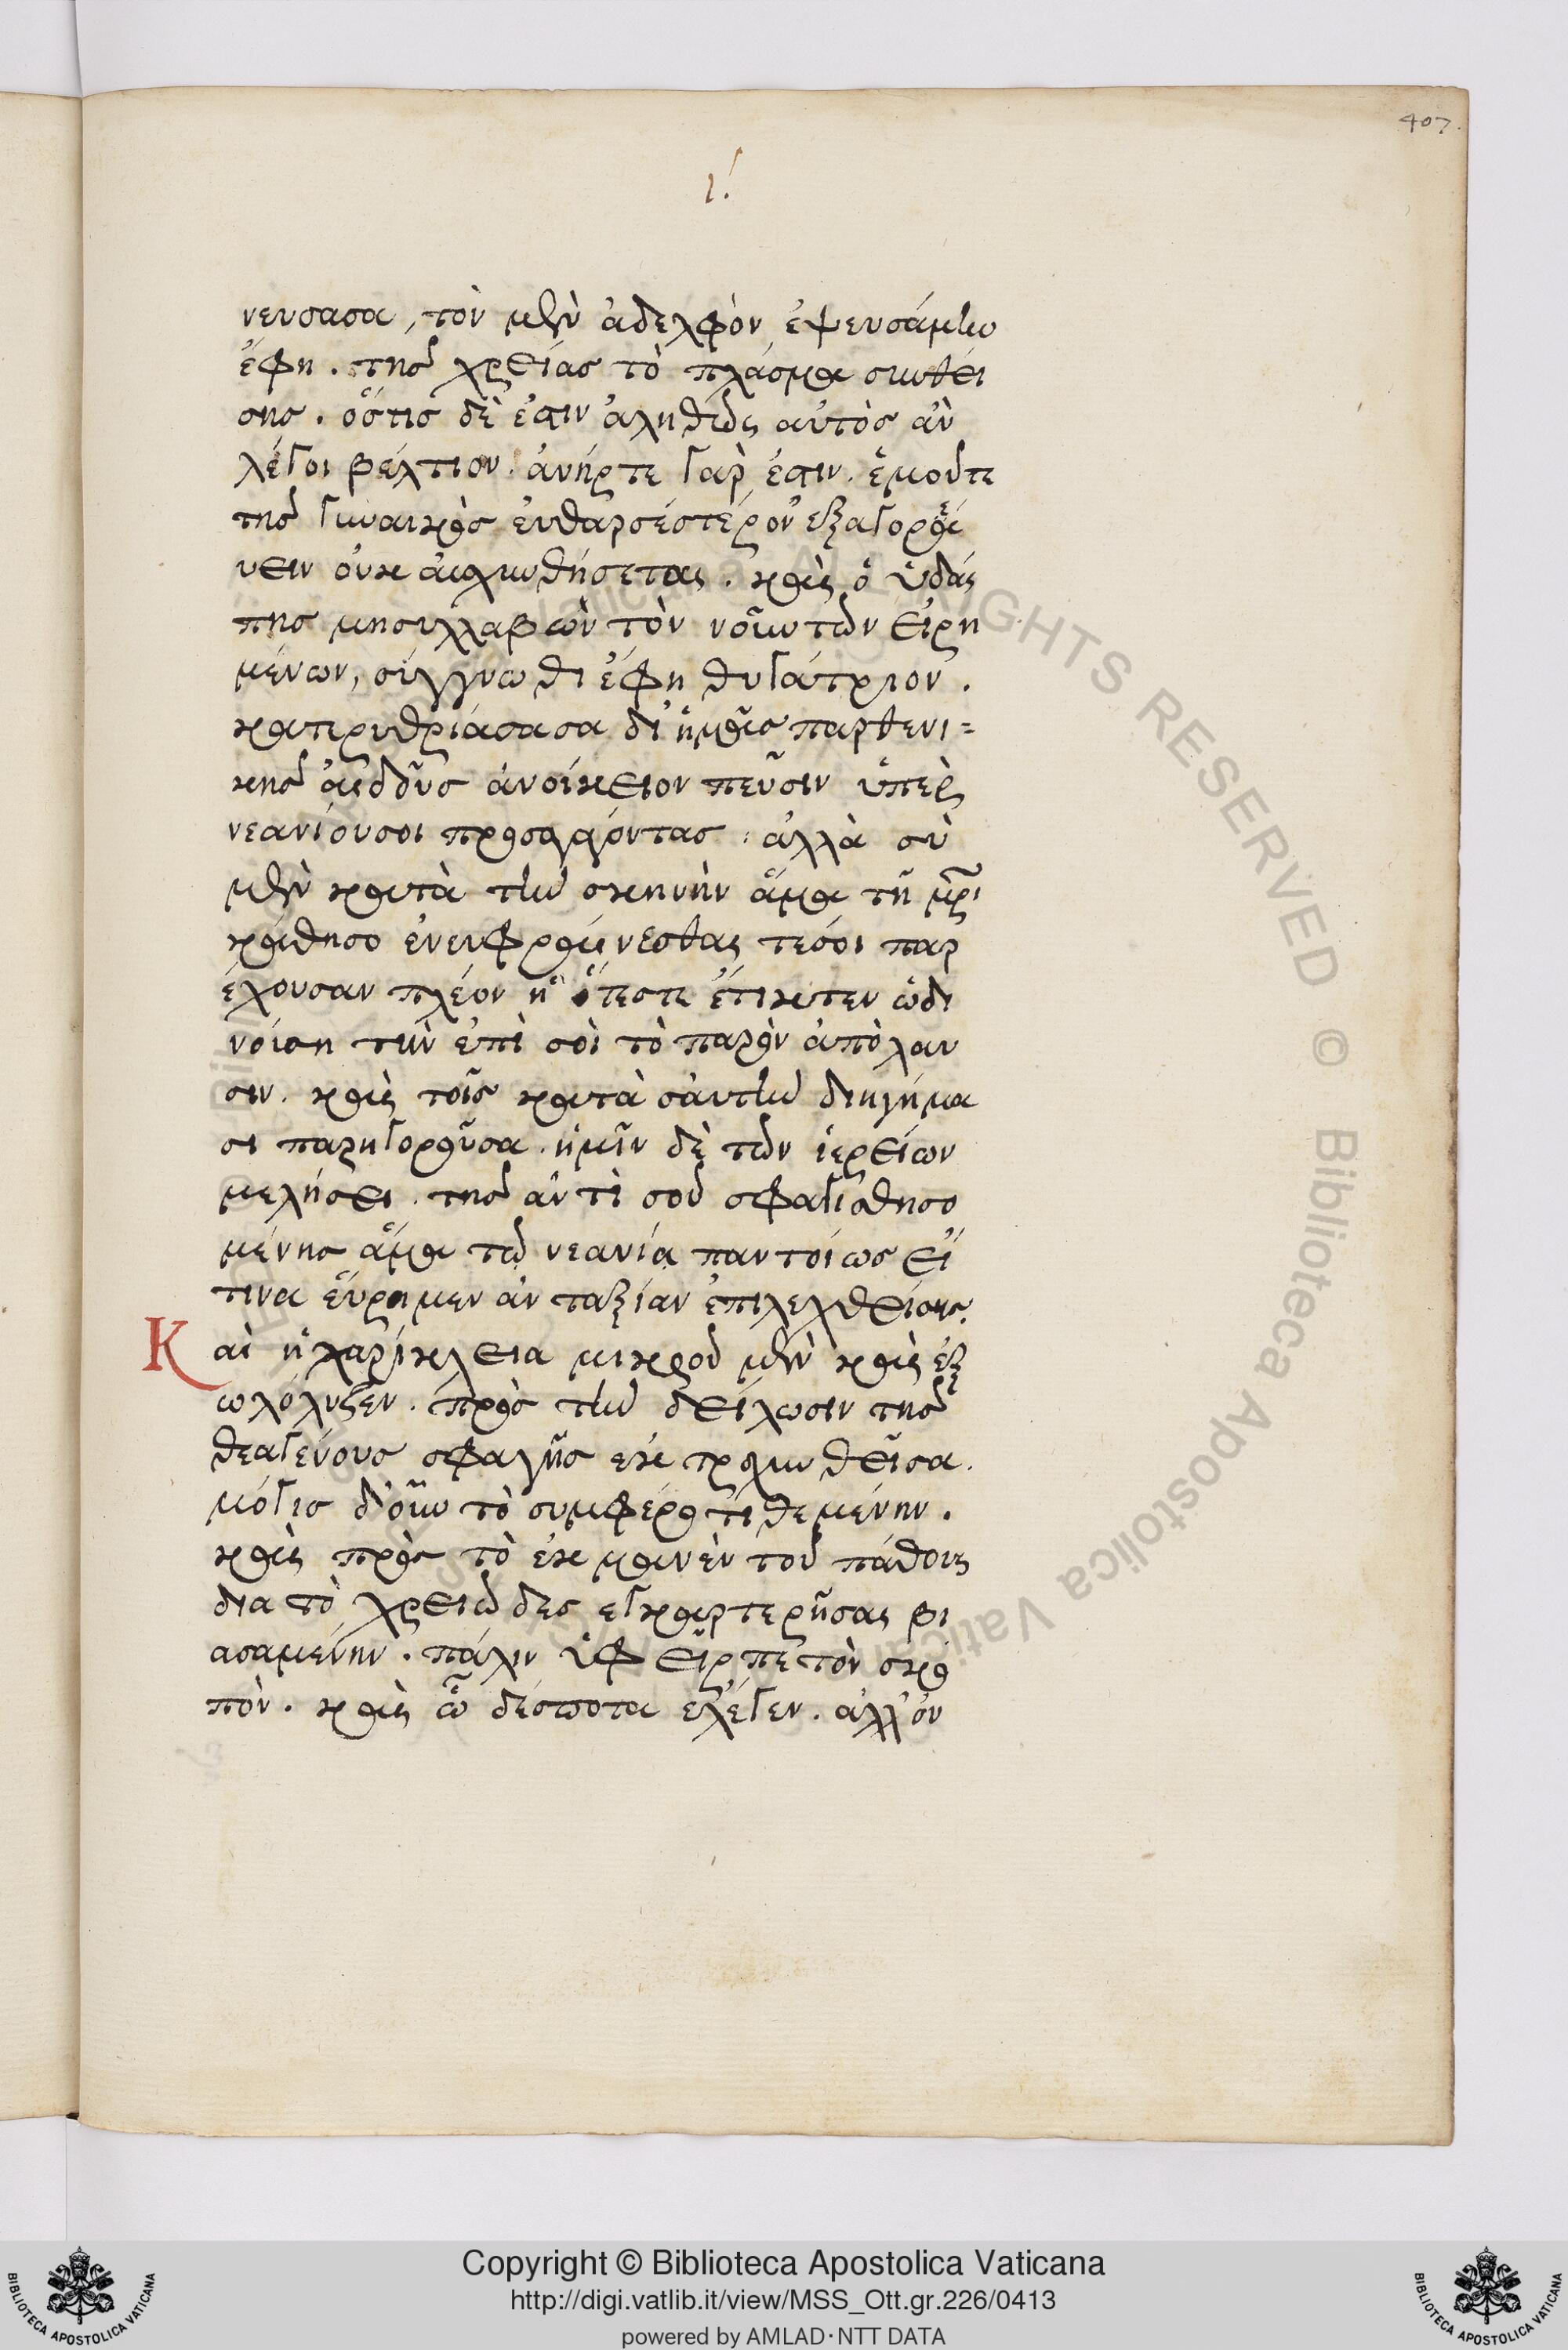 407.
ι΄.
νευσασα, τὸν μὲν ἀδελφὸν ἐψευσάμην
ἔφη. τῆς χρείας τὸ πλάσμα συνθεί
σης. ὅστις δὲ ἐστιν ἀληθῶς αὐτὸς ἂν
λέγοι βέλτιον. ἀνήρτε γαρ ἐστιν. ἐμοῦτε
τῆς γυναικὸς ἐυθαρσέστερον ἐξαγορεύ
υειν οὐκ αἰσχυνθήσεται. καὶ ὁ ὑδάσ
πης μησυλλαβὼν τὸν νοῦν τῶν εἰρη
μένων, σύγγνωθι ἔφη θυγάτριον.
κατερυθριάσασα δι' ἡμᾶς παρθενι=
κῆς αἰδοῦς ἀνοίκειον πεῦσιν ὑπὲρ
νεανίου σοι προσαγαγόντας. ἀλλὰ σὺ
μὲν κατὰ τὴν σκηνὴν ἅμα τῆ μρι
κάθησο ἐνευφραίνεσθαι τεσοι παρ
έχουσαν πλέον ἢ ὅτεστε ἔτικτεν ὠδι
νούση τὴν ἐπὶ σοὶ τὸ παρὸν ἀπόλαυ
σιν. καὶ τοῖς κατὰ σαυτὴν διηγήμα
σι παρηγοροῦσα. ἡμῖν δὲ τῶν ἱερείων
μελήσει. τῆς ἀντὶ σοῦ σφαγιασθησο
μένης ἅμα τῶ νεανία παντοίως εἴ
τινα εὕροιμεν ἀν ταξίαν ἐπιλεχθείσης.
Καὶ ἡ χαρίκλεια μικροῦ μὲν καὶ ἐξ
ωλόλυξεν. πρὸς τὴν δείλωσιν τῆς
θεαγένους σφαγῆς ἐκ τραχυνθεῖσα.
μόγις δ'οὖν τὸ συμφέρο τιθεμένην.
καὶ πρὸς τὸ ἐκ μανὲν τοῦ πάθους
δια τὸ χρειῶδες ἐγκαρτερῆσαι βι
ασαμένην. πάλιν ὑφ εῖρπε τὸν σκο
πὸν. καὶ ὦ δέσποτα ἔλεγεν. ἀλλ'οὐ
Copyright © Biblioteca Apostolica Vaticana
http://digi.vatlib.it/view/MSS_Ott.gr.226/0413
powered by AMLAD·NTT DATA